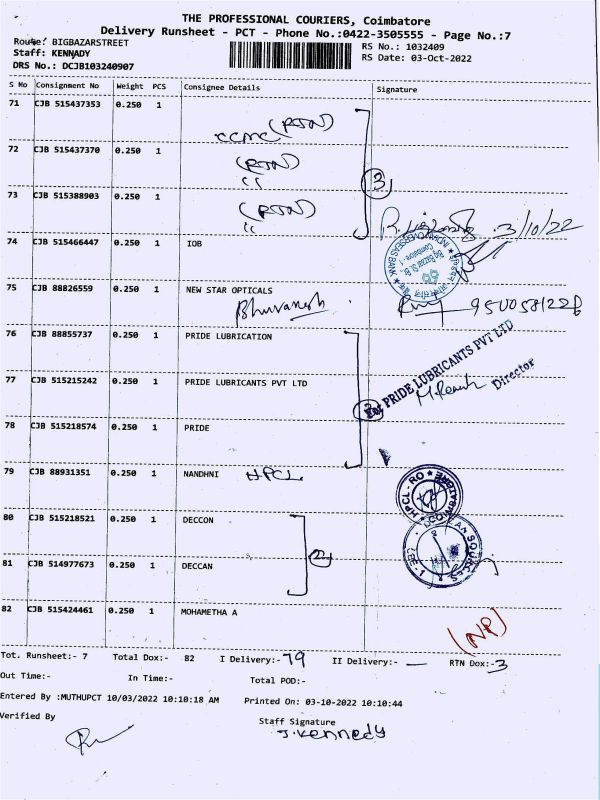 THE PROFESSIONAL COURIERS, Coimbatore
Delivery Runsheet - PCT - Phone No.:0422-3505555 - Page No.:7
Route: BIGBAZARSTREET
Staff: KENNADY
DRS No.: DCJB103240907
RS No.: 1032409
RS Date: 03-Oct-2022
S No Consignment No Weight PCS Consignee Details Signature
71 CJB 515437353 0.250 1
CCMC (RTN)
72 CJB 515437370 0.250 1
(RTN)
73 CJB 515388903 0.250 1
(RTN)
3
3/10/22
74 CJB 515466447 0.250 1 IOB
INDIAN OVERSEAS BANK
75 CJB 88826559 0.250 1 NEW STAR OPTICALS
Bhuvanesh
76 CJB 88855737 0.250 1 PRIDE LUBRICATION
77 CJB 515215242 0.250 1 PRIDE LUBRICANTS PVT LTD
For PRIDE LUBRICANTS PVT LTD
Director
78 CJB 515218574 0.250 1 PRIDE
79 CJB 88931351 0.250 1 NANDHNI HPCL
HPCL-RO
COIMBATORE
80 CJB 515218521 0.250 1 DECCON
2
81 CJB 514977673 0.250 1 DECCAN
82 CJB 515424461 0.250 1 MOHAMETHA A
(NP)
Tot. Runsheet:- 7 Total Dox:- 82 I Delivery:- 79 II Delivery:- — RTN Dox:- 3
Out Time:- In Time:- Total POD:-
Entered By :MUTHUPCT 10/03/2022 10:10:18 AM Printed On: 03-10-2022 10:10:44
Verified By Staff Signature
J. Kennedy